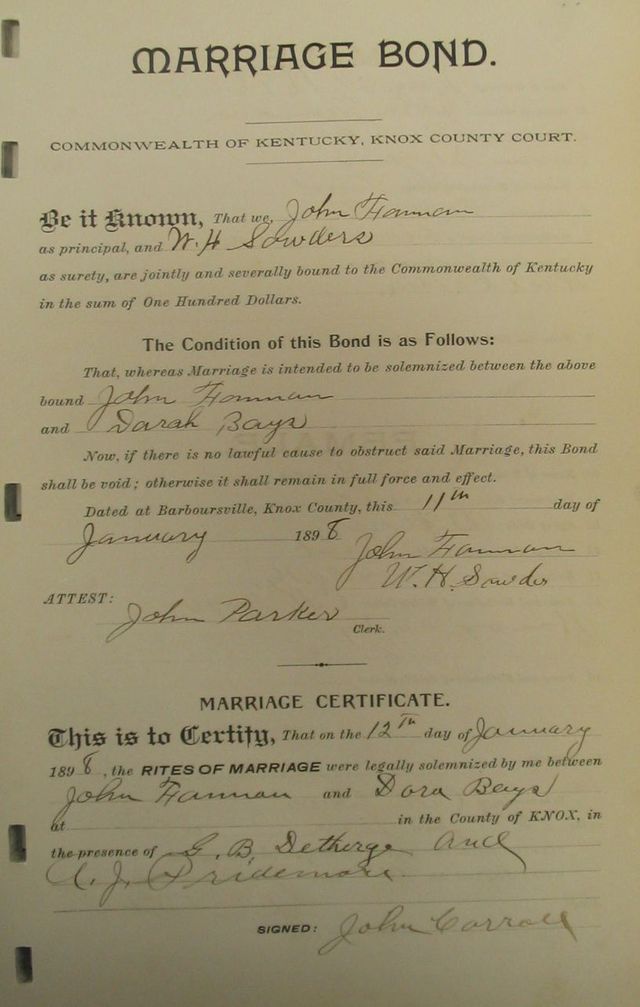 MARRIAGE BOND.
COMMONWEALTH OF KENTUCKY, KNOX COUNTY COURT.
Be it Known, That we, John Fannan
as principal, and W. H Sowders
as surety, are jointly and severally bound to the Commonwealth of Kentucky
in the sum of One Hundred Dollars.
The Condition of this Bond is as Follows:
That, whereas Marriage is intended to be solemnized between the above
bound John Fannan
and Darah Bays
Now, if there is no lawful cause to obstruct said Marriage, this Bond
shall be void; otherwise it shall remain in full force and effect.
Dated at Barboursville, Knox County, this 11th day of
January 1898
John Fannan
W. H. Sowders
ATTEST:
John Parker
Clerk.
MARRIAGE CERTIFICATE.
This is to Certify, That on the 12th day of January
1898, the RITES OF MARRIAGE were legally solemnized by me between
John Fannan and Dora Bays
at in the County of KNOX, in
the presence of G. B. Detherge and
J. Pridemore
SIGNED: John Carroll